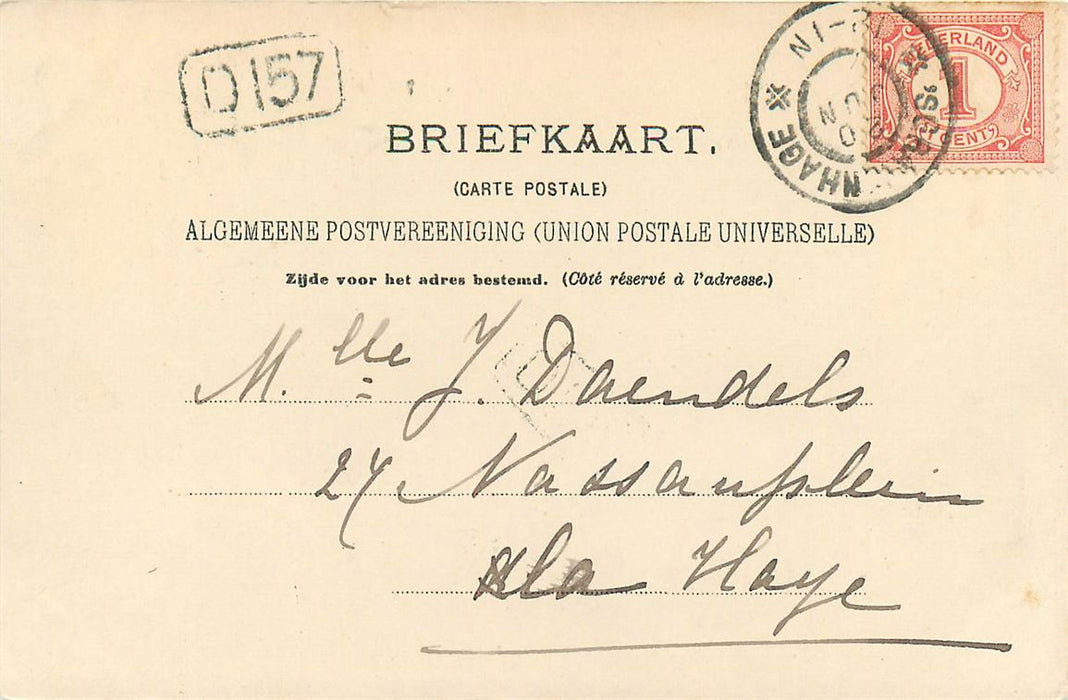 D157
NEDERLAND
1
CENT
12-1N
JUN
'S GRAVENHAGE
BRIEFKAART.
(CARTE POSTALE)
ALGEMEENE POSTVEREENIGING (UNION POSTALE UNIVERSELLE)
Zijde voor het adres bestemd. (Côté réservé à l'adresse.)
M.lle J. Daendels
27 Nassauplein
La Haye